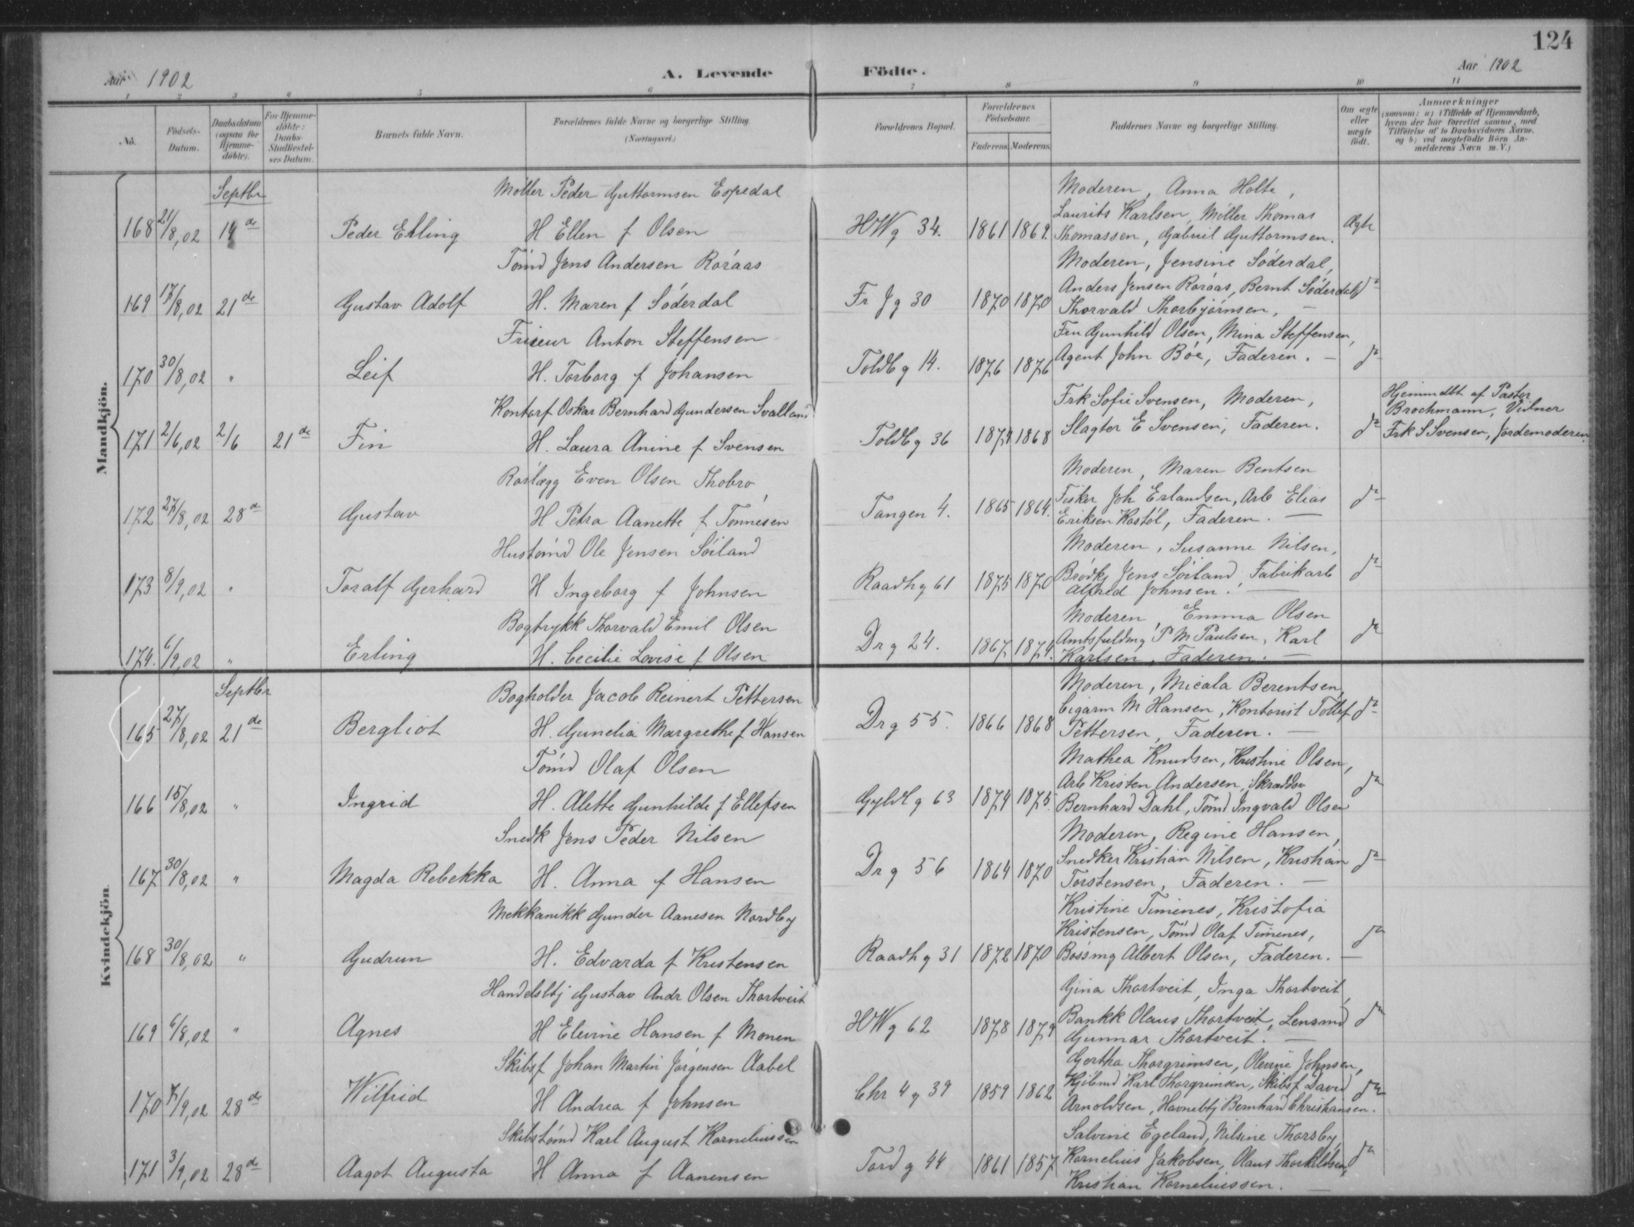 124
Aar 1902
A. Levende
Fødte.
Aar 1902
1 2 3 4 5 6 7 8 9 10 11
No.
Fødsels-Datum.
Daabsdatum (ogsaa for Hjemme-døbte).
For Hjemme-døbte: Daabs-Stadfæstel-ses Datum.
Barnets fulde Navn.
Forældrenes fulde Navne og borgerlige Stilling (Næringsvei.)
Forældrenes Bopæl.
Forældrenes Fødselsaar.
Faderens. Moderens.
Faddernes Navne og borgerlige Stilling.
Om ægte eller uægte født.
Anmærkninger
(saasom: a) i Tilfælde af Hjemmedaab, hvem der har forrettet samme, med Tilføielse af to Daabsvidners Navne, og b) ved uægtefødte Børn An-melderens Navn m. V.)
Mandkjøn.
Septbr
Møller Peder Guttormsen Espedal
Moderen, Anna Holte,
Laurits Karlsen, Møller Thomas
168 21/8,02 14de Peder Erling H Ellen f Olsen HWg 34. 1861 1869. Thomassen, Gabriel Guttormsen. Ægte
Tømd Jens Andersen Røraas
Moderen, Jensine Söderdal,
Anders Jensen Røraas, Bernt Söderdal, do
169 17/8,02 21de Gustav Adolf H. Maren f Söderdal Fr Jg 30 1870 1870 Thorvald Thorbjörnsen. —
Friseur Anton Steffensen
Fru Gunhild Olsen, Mina Steffensen,
170 30/8,02 " Leif H. Torborg f Johansen Toldbg 14. 1876 1876 Agent John Bøe, Faderen. — do
Kontorf Oskar Bernhard Gundersen Svalland
Frk Sofie Svensen, Moderen,
Hjemmedbt af Pastor
Brochmann, Vidner
171 2/6,02 2/6 21de Fin H. Laura Anine f Svensen Toldbg 36 1874 1868 Slagter E Svensen, Faderen. do Frk S Svensen, Jordemoderen
Even Olsen Thobro
Moderen, Maren Bentsen
Fisker Joh Erlandsen, Arb Elias
172 27/8,02 28de Gustav H Petra Aanette f Tønnesen Tangen 4. 1865 1864. Eriksen Kostöl, Faderen. — do
Hustømd Ole Jensen Söiland
Moderen, Susanne Nilsen,
Jens Söiland, Fabrikarb
173 8/9,02 " Toralf Gerhard H Ingeborg f Johnsen Raadhg 61 1875 1870 Alfred Johnsen. — do
Bogtrykk Thorvald Emil Olsen
Moderen, Emma Olsen
P M Paulsen, Karl
174. 6/9,02 " Erling H. Cecilie Lovise f Olsen Drg 24. 1867 1874. Karlsen, Faderen. — do
Kvindekjön.
Septbr
Bogholder Jacob Reinert Pettersen
Moderen, Micala Berentsen,
Cigarm M Hansen, Kontorist Tollef do
165 27/8,02 21de Bergliot H. Gunelia Margrethe f Hansen Drg 55. 1866 1868 Pettersen, Faderen. —
Tømd Olaf Olsen
Mathea Knudsen, Kristine Olsen,
Arb Kristen Andersen, Skrædder
166 15/8,02 " Ingrid H. Alette Gunhilde f Ellefsen Gyldlg 63 1874 1875. Bernhard Dahl, Tømd Ingvald Olsen do
Snedk Jens Peder Nilsen
Moderen, Regine Hansen,
Snedker Kristian Nilsen, Kristian
167 30/8,02 " Magda Rebekka H. Anna f Hansen Drg 56 1864 1870 Torstensen, Faderen. — do
Mekkanikk Gunder Aanesen Nordby
Kristine Timenes, Kristofia
Kristensen, Tømd Olaf Timenes,
168 30/8,02 " Gudrun H. Edvarda f Kristensen Raadhg 31 1872 1870 Bøssmg Albert Olsen, Faderen. — do
Handelsbtj Gustav Andr Olsen Thortveit
Gina Thortveit, Inga Thortveit,
Bankk Olaus Thortveit, Lensmd
169 6/8,02 " Agnes H Elevine Hansen f Monen HWg 62 1878 1879 Gunnar Thortveit. — do
Skibsf Johan Martin Jørgensen Aabel
Gertha Thorgrimsen, Olevine Johnsen,
Kjöbmd Karl Thorgrimsen, Skibsf David
170 7/9,02 28de Wilfrid H Andrea f Johnsen Chr 4 g 39 1859 1862 Arnoldsen, Havnebtj Bernhard Christiansen. do
Skibstømd Karl August Korneliussen
Salvine Egeland, Nilsine Thorsby,
Kornelius Jakobsen, Olaus Thorkildsen,
171 3/9,02 28de Aagot Augusta H Anna f Aanensen Tordg 44 1861 1857 Kristian Korneliussen. — do